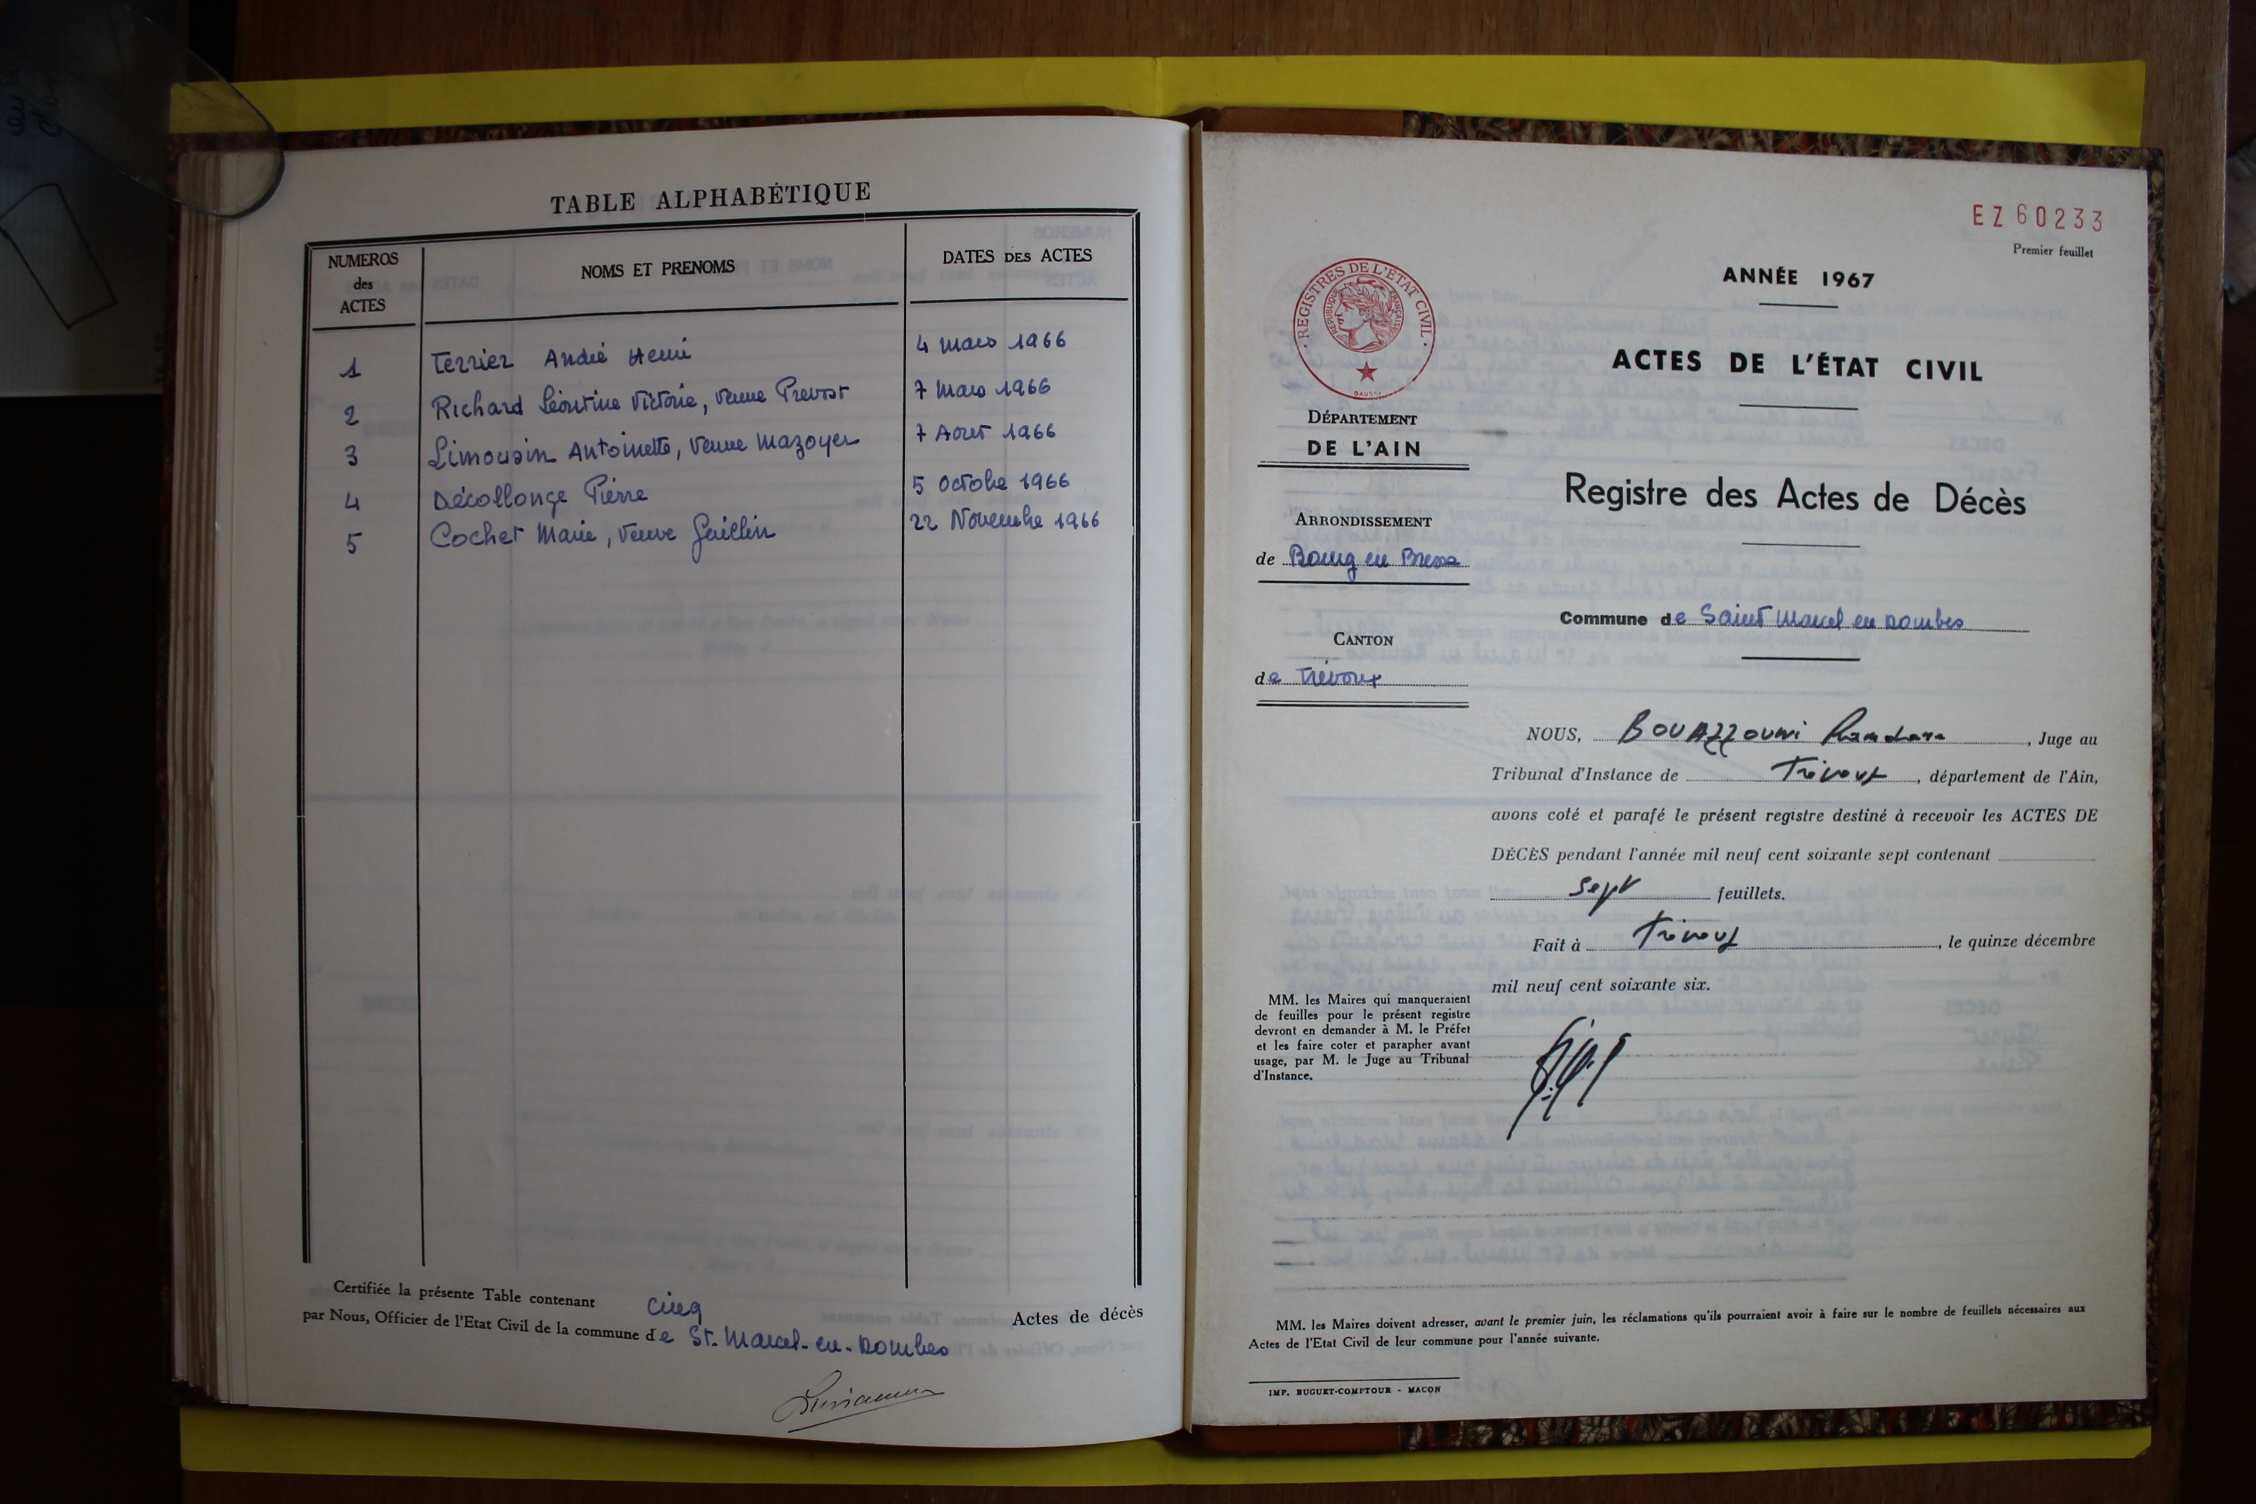 TABLE ALPHABÉTIQUE
NUMEROS
des
ACTES
NOMS ET PRENOMS
DATES DES ACTES
1 Terrier André Henri 4 mars 1966
2 Richard Léontine Victorie, veuve Prevost 7 Mars 1966
3 Limousin Antoinette, veuve Mazoyer 7 Aout 1966
4 Décollonge Pierre 5 Octobre 1966
5 Cochet Marie, veuve Guillin 22 Novembre 1966
Certifiée la présente Table contenant cinq Actes de décès
par Nous, Officier de l'Etat Civil de la commune de St. Marcel-en-Dombes
EZ 60233
Premier feuillet
REGISTRES DE L'ÉTAT CIVIL
RÉPUBLIQUE FRANÇAISE
ANNÉE 1967
ACTES DE L'ÉTAT CIVIL
DÉPARTEMENT
DE L'AIN
Registre des Actes de Décès
ARRONDISSEMENT
de Bourg en Bresse
Commune de Saint Marcel en Dombes
CANTON
de Trévoux
NOUS, BOUAZZOUNI Ramdane, Juge au
Tribunal d'Instance de Trévoux, département de l'Ain,
avons coté et parafé le présent registre destiné à recevoir les ACTES DE
DÉCÈS pendant l'année mil neuf cent soixante sept contenant
sept feuillets.
Fait à Trévoux, le quinze décembre
mil neuf cent soixante six.
MM. les Maires qui manqueraient
de feuilles pour le présent registre
devront en demander à M. le Préfet
et les faire coter et parapher avant
usage, par M. le Juge au Tribunal
d'Instance.
MM. les Maires doivent adresser, avant le premier juin, les réclamations qu'ils pourraient avoir à faire sur le nombre de feuillets nécessaires aux
Actes de l'Etat Civil de leur commune pour l'année suivante.
IMP. BUGUET-COMPTOUR - MACON